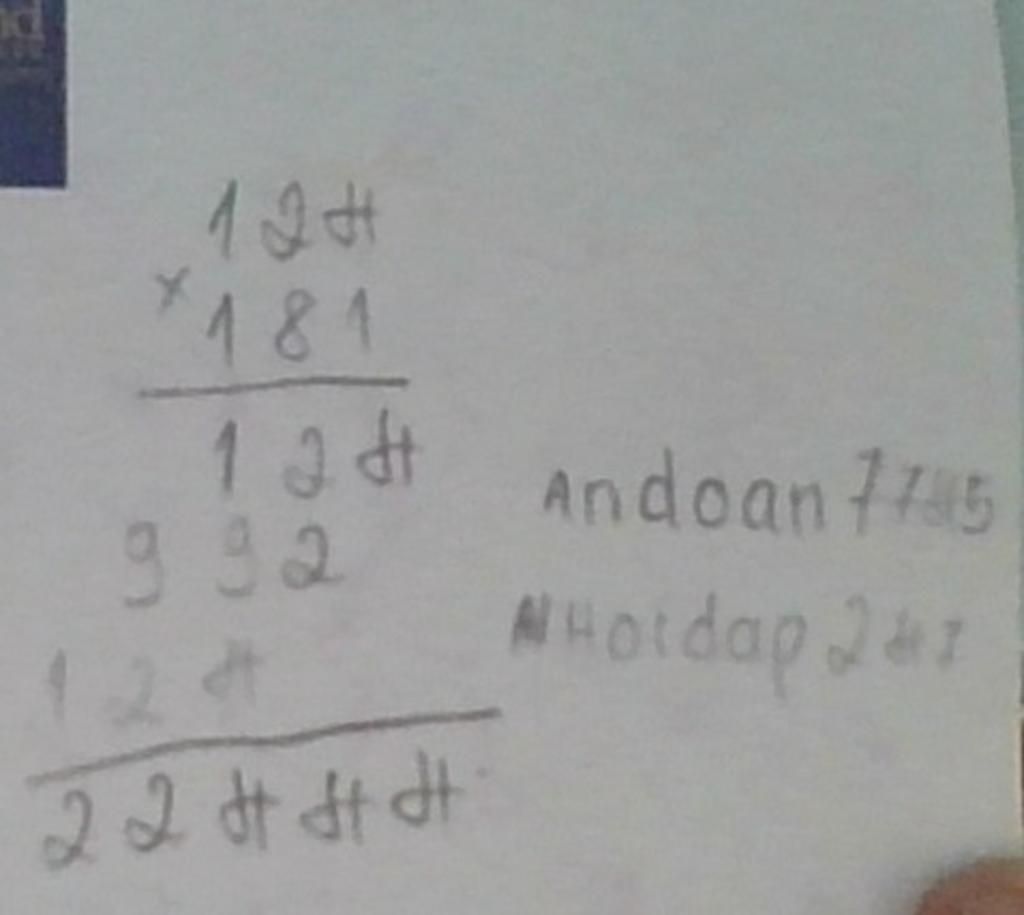 124
× 181
124
992
124
22444
Andoan 77
Hoidap 247